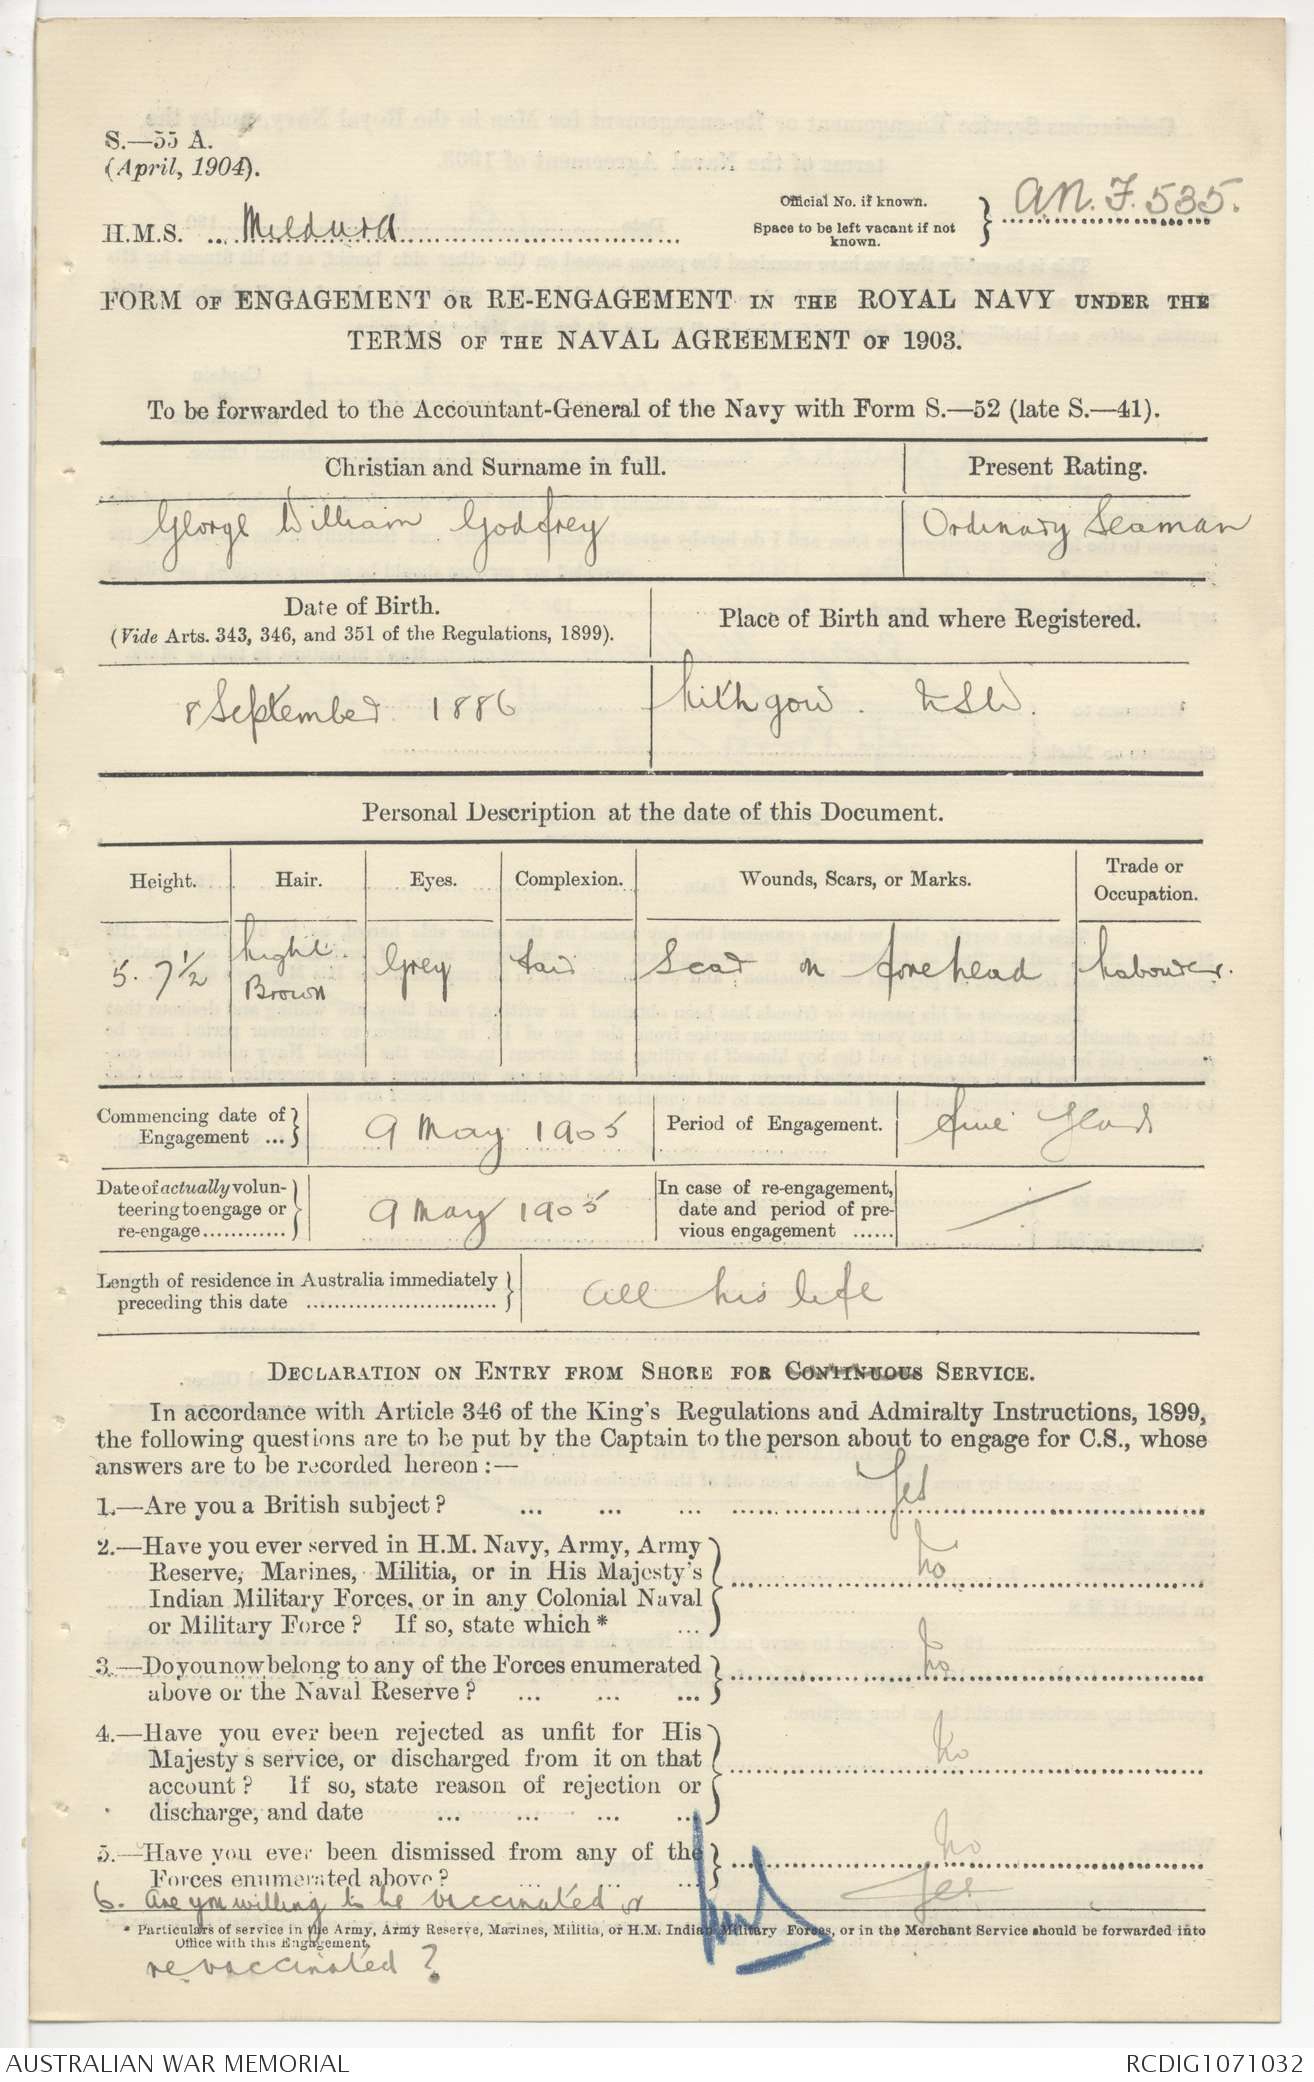 S.—55 A.
(April, 1904).
H.M.S. ... Mildura
Official No. if known.
Space to be left vacant if not known. } A.N.F. 535.
FORM OF ENGAGEMENT OR RE-ENGAGEMENT IN THE ROYAL NAVY UNDER THE
TERMS OF THE NAVAL AGREEMENT OF 1903.
To be forwarded to the Accountant-General of the Navy with Form S.—52 (late S.—41).
Christian and Surname in full. Present Rating.
George William Godfrey Ordinary Seaman
Date of Birth.
(Vide Arts. 343, 346, and 351 of the Regulations, 1899).
Place of Birth and where Registered.
8 September 1886 Lithgow. NSW.
Personal Description at the date of this Document.
Height. Hair. Eyes. Complexion. Wounds, Scars, or Marks. Trade or Occupation.
5. 7½ Light Brown Grey Fair Scar on forehead Labourer.
Commencing date of Engagement ... } 9 May 1905 Period of Engagement. Five Years
Date of actually volun-
teering to engage or
re-engage............ } 9 May 1905
In case of re-engagement,
date and period of pre-
vious engagement ......
Length of residence in Australia immediately
preceding this date ............................ } All his life
DECLARATION ON ENTRY FROM SHORE FOR CONTINUOUS SERVICE.
In accordance with Article 346 of the King's Regulations and Admiralty Instructions, 1899,
the following questions are to be put by the Captain to the person about to engage for C.S., whose
answers are to be recorded hereon :—
1.—Are you a British subject? ... ... ... Yes
2.—Have you ever served in H.M. Navy, Army, Army
Reserve, Marines, Militia, or in His Majesty's
Indian Military Forces, or in any Colonial Naval
or Military Force? If so, state which * ... } No
3.—Do you now belong to any of the Forces enumerated
above or the Naval Reserve? ... ... ... } No
4.—Have you ever been rejected as unfit for His
Majesty's service, or discharged from it on that
account? If so, state reason of rejection or
discharge, and date ... ... ... ... } No
5.—Have you ever been dismissed from any of the
Forces enumerated above? ... ... ... } No
6. Are you willing to be vaccinated or Yes
* Particulars of service in the Army, Army Reserve, Marines, Militia, or H.M. Indian Military Forces, or in the Merchant Service should be forwarded into
Office with this Engagement.
revaccinated?
AUSTRALIAN WAR MEMORIAL RCDIG1071032